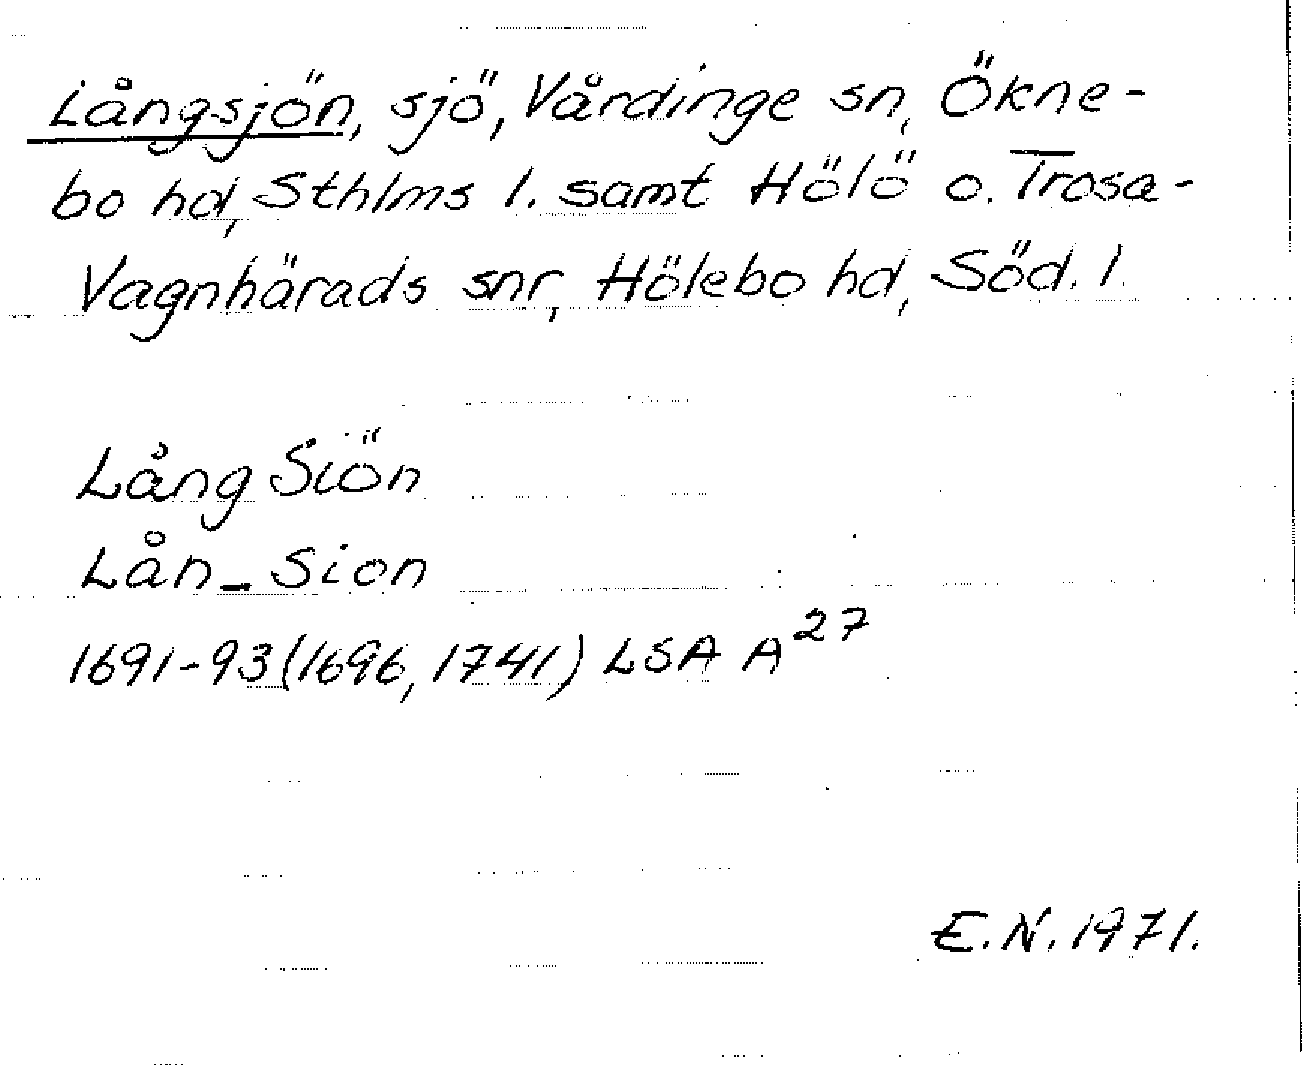 Långsjön, sjö, Vårdinge sn, Ökne-
bo hd, Sthlms l. samt Hölö o. Trosa-
Vagnhärads snr, Hölebo hd, Söd. l.
Lång Siön
Lån-Sion
1691-93 (1696, 1741) LSA A²⁷
E.N. 1971.